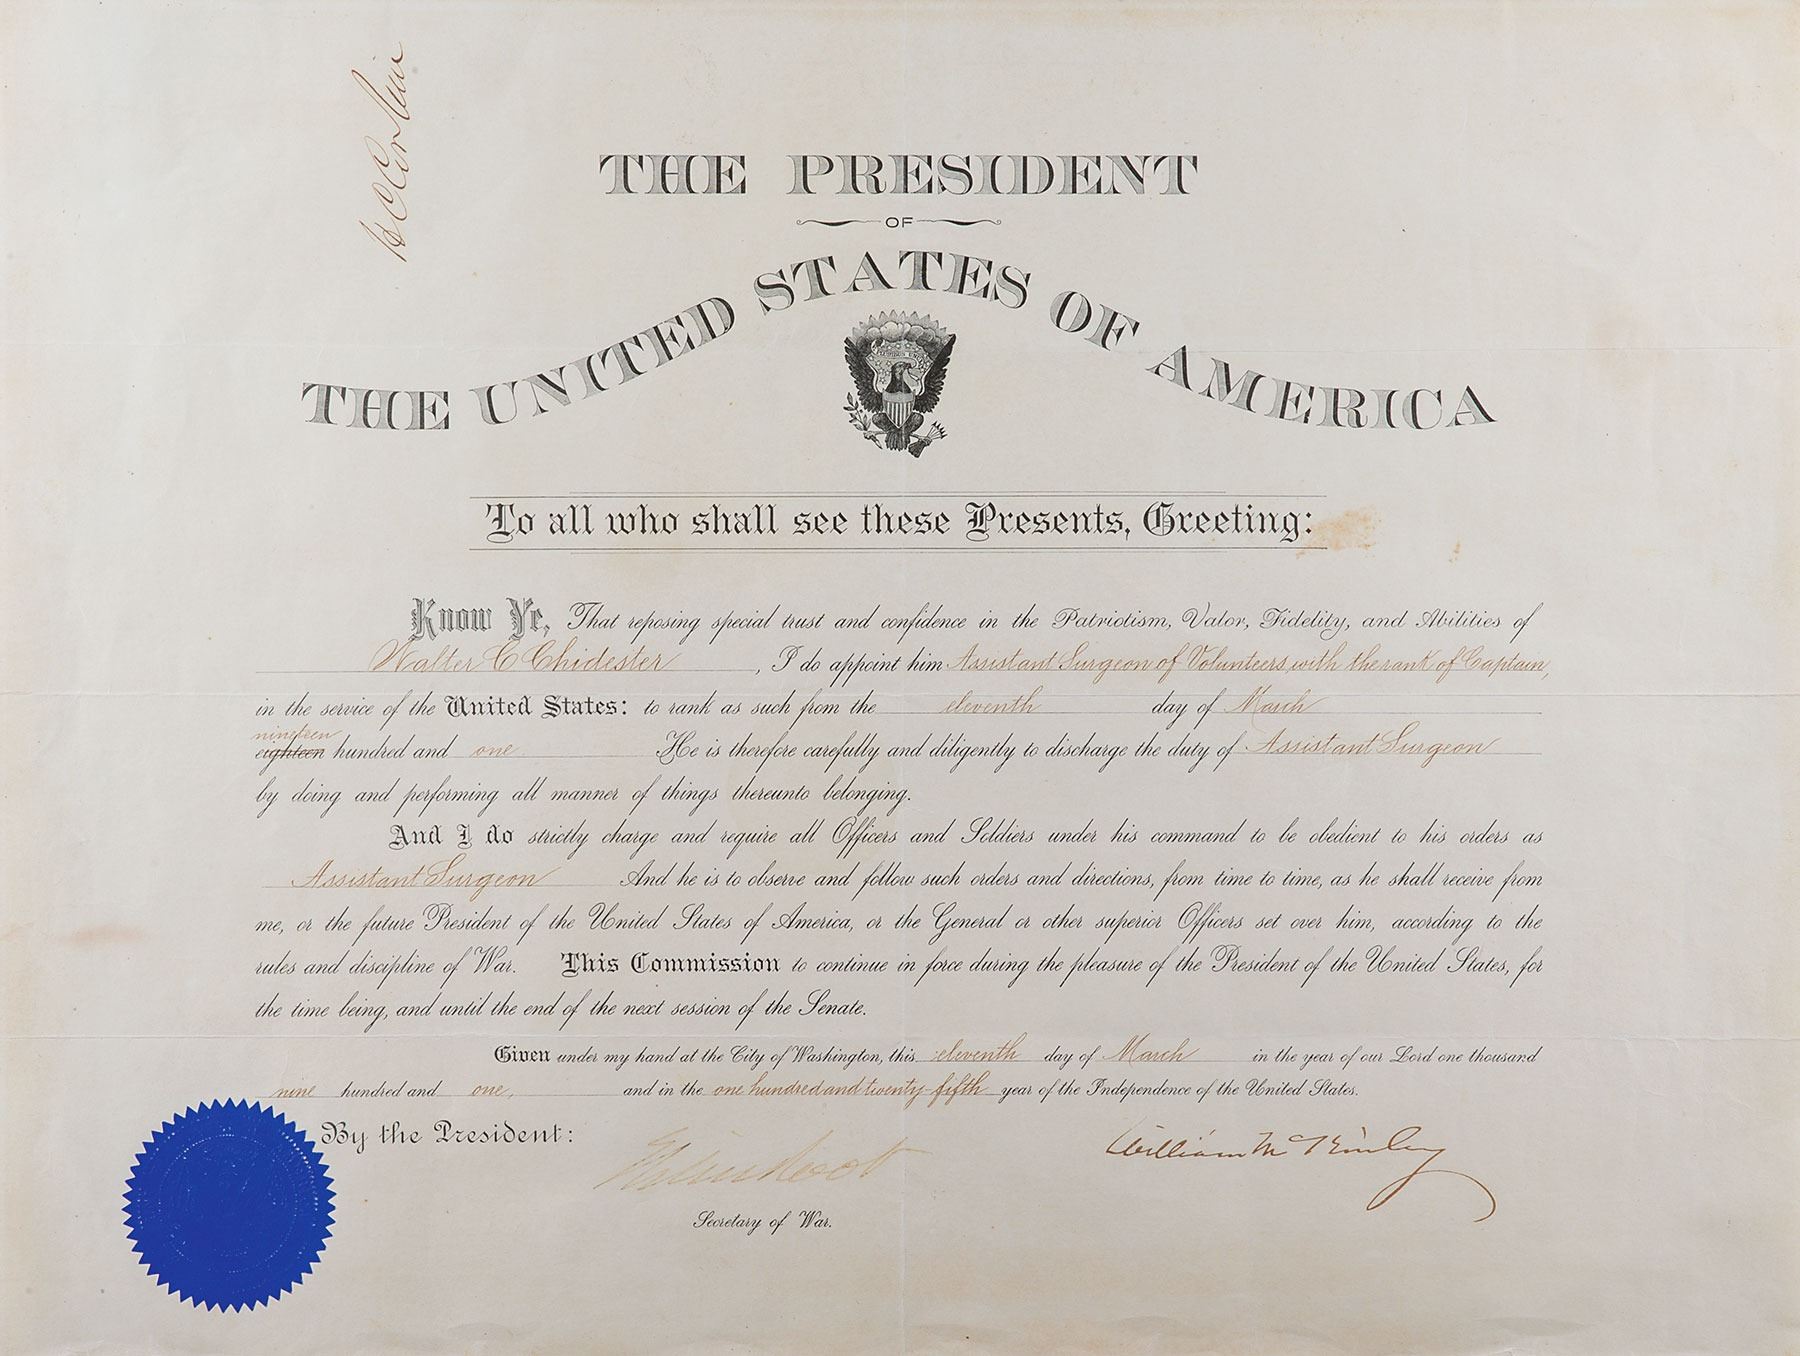 H C Corbin
THE PRESIDENT
OF
THE UNITED STATES OF AMERICA
To all who shall see these Presents, Greeting:
Know Ye, That reposing special trust and confidence in the Patriotism, Valor, Fidelity, and Abilities of
Walter C Chidester, I do appoint him Assistant Surgeon of Volunteers, with the rank of Captain,
in the service of the United States: to rank as such from the eleventh day of March
nineteen
eighteen hundred and one He is therefore carefully and diligently to discharge the duty of Assistant Surgeon
by doing and performing all manner of things thereunto belonging.
And I do strictly charge and require all Officers and Soldiers under his command to be obedient to his orders as
Assistant Surgeon And he is to observe and follow such orders and directions, from time to time, as he shall receive from
me, or the future President of the United States of America, or the General or other superior Officers set over him, according to the
rules and discipline of War. This Commission to continue in force during the pleasure of the President of the United States, for
the time being, and until the end of the next session of the Senate.
Given under my hand at the City of Washington, this eleventh day of March in the year of our Lord one thousand
nine hundred and one, and in the one hundred and twenty-fifth year of the Independence of the United States.
By the President:
Elihu Root
William McKinley
Secretary of War.